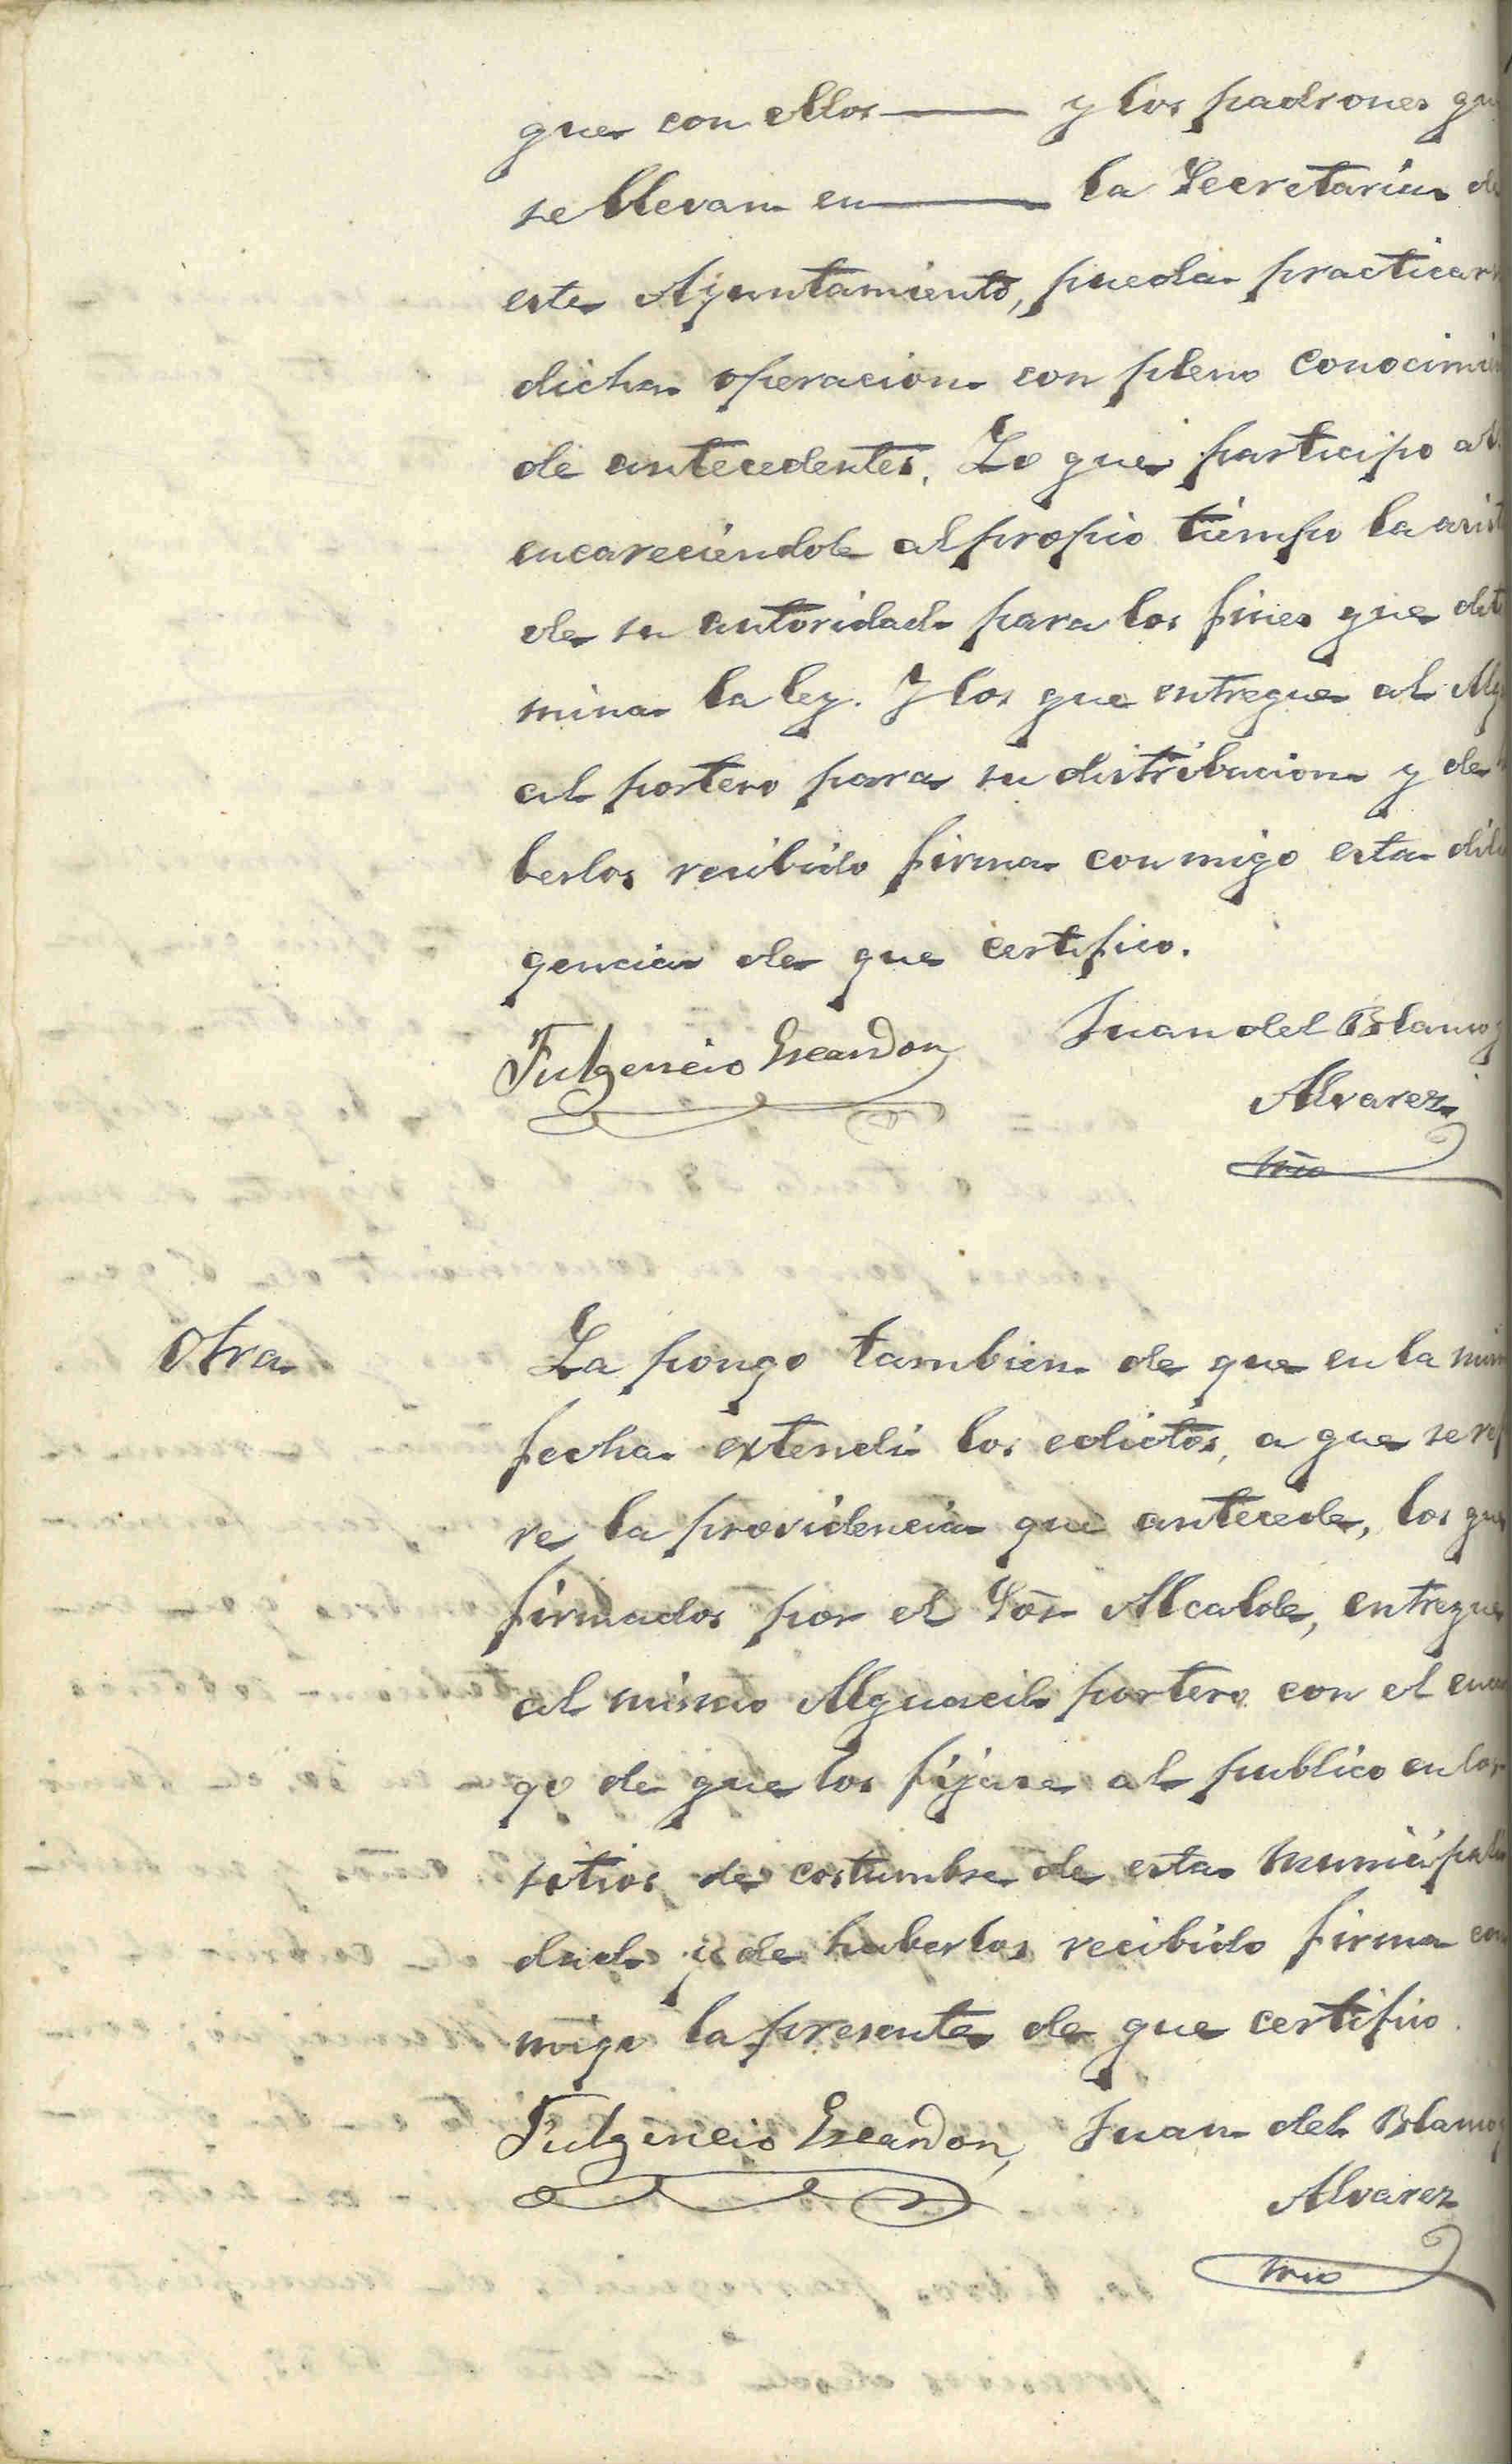 que con ellos —— y los padrones qu
se llevan en —— la Secretaria de
este Ayuntamiento, pueda practicar
dicha operacion con pleno conocimi
de antecedentes. Lo que participo a V.
encareciéndole al propio tiempo la asist
de su autoridad para los fines que det
mina la ley. Y los que entregue al Alg
al portero para su distribucion y de
berlos recibido firma conmigo esta dili
gencia de que certifico.
Fulgencio Escandon Juan del Blanco y
Alvarez
Srio
Otra La pongo tambien de que en la mism
fecha extendi los edictos, a que se ref
re la providencia que antecede, los que
firmados por el Sõr Alcalde, entregue
al mismo Alguacil portero con el enca
go de que los fijase al publico en los
sitios de costumbre de esta municipali
dad y de haberlos recibido firma con
migo la presente de que certifico.
Fulgencio Escandon, Juan del Blanco y
Alvarez
Srio